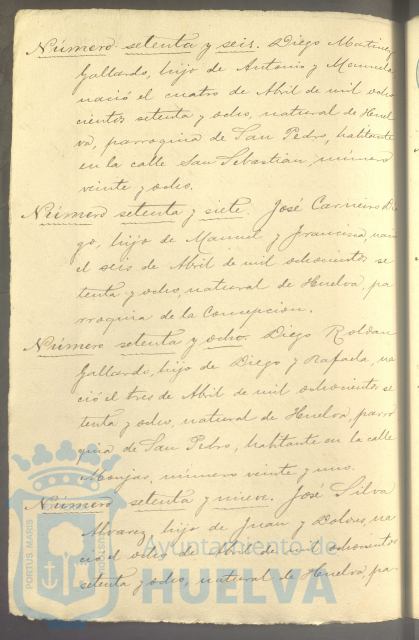 Número setenta y seis. Diego Matinez
Gallardo, hijo de Antonio y Manuela,
nació el cuatro de Abril de mil ocho
cientos setenta y ocho, natural de Huel
va, parroquia de San Pedro, habitante
en la calle San Sebastian, número
veinte y ocho.
Número setenta y siete. José Carneiro Die
go, hijo de Manuel y Francisca, nació
el seis de Abril de mil ochocientos se
tenta y ocho, natural de Huelva, pa
rroquia de la Concepcion.
Número setenta y ocho. Diego Roldan
Gallardo, hijo de Diego y Rafaela, na
ció el tres de Abril de mil ochocientos se
tenta y ocho, natural de Huelva, parro
quia de San Pedro, habitante en la calle
Monjas, número veinte y uno.
Número setenta y nueve. José Silva
Alvarez, hijo de Juan y Dolores, na
ció el ocho de Abril de mil ochocientos
setenta y ocho, natural de Huelva, pa-
PORTUS MARIS
Ayuntamiento de
HUELVA